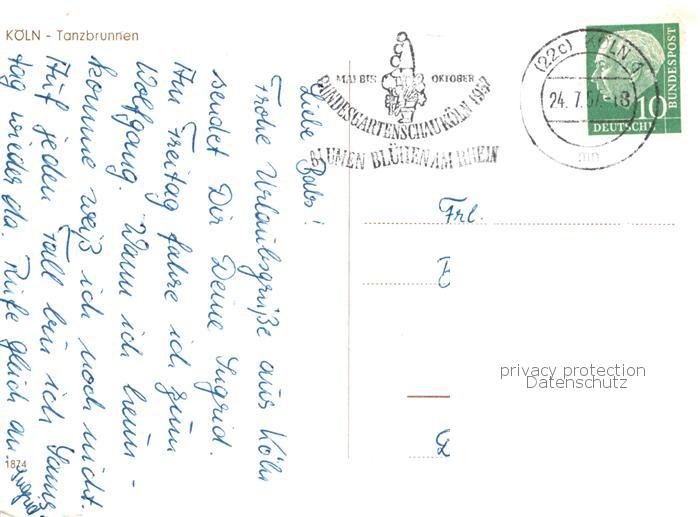 KÖLN - Tanzbrunnen
Liebe Babs!
Frohe Urlaubsgrüße aus Köln
sendet Dir Deine Ingrid.
Am Freitag fahre ich zum
Wolfgang. Wann ich heim-
komme weiß ich noch nicht.
Auf jeden Fall bin ich Sams
tag wieder da. Rufe gleich an.
Ingrid
1874
MAI BIS OKTOBER
BUNDESGARTENSCHAU KÖLN 1957
BLUMEN BLÜHEN AM RHEIN
(22c) KÖLN 7
24. 7. 57.-18
mn
10
DEUTSCHE
BUNDESPOST
Frl.
privacy protection
Datenschutz